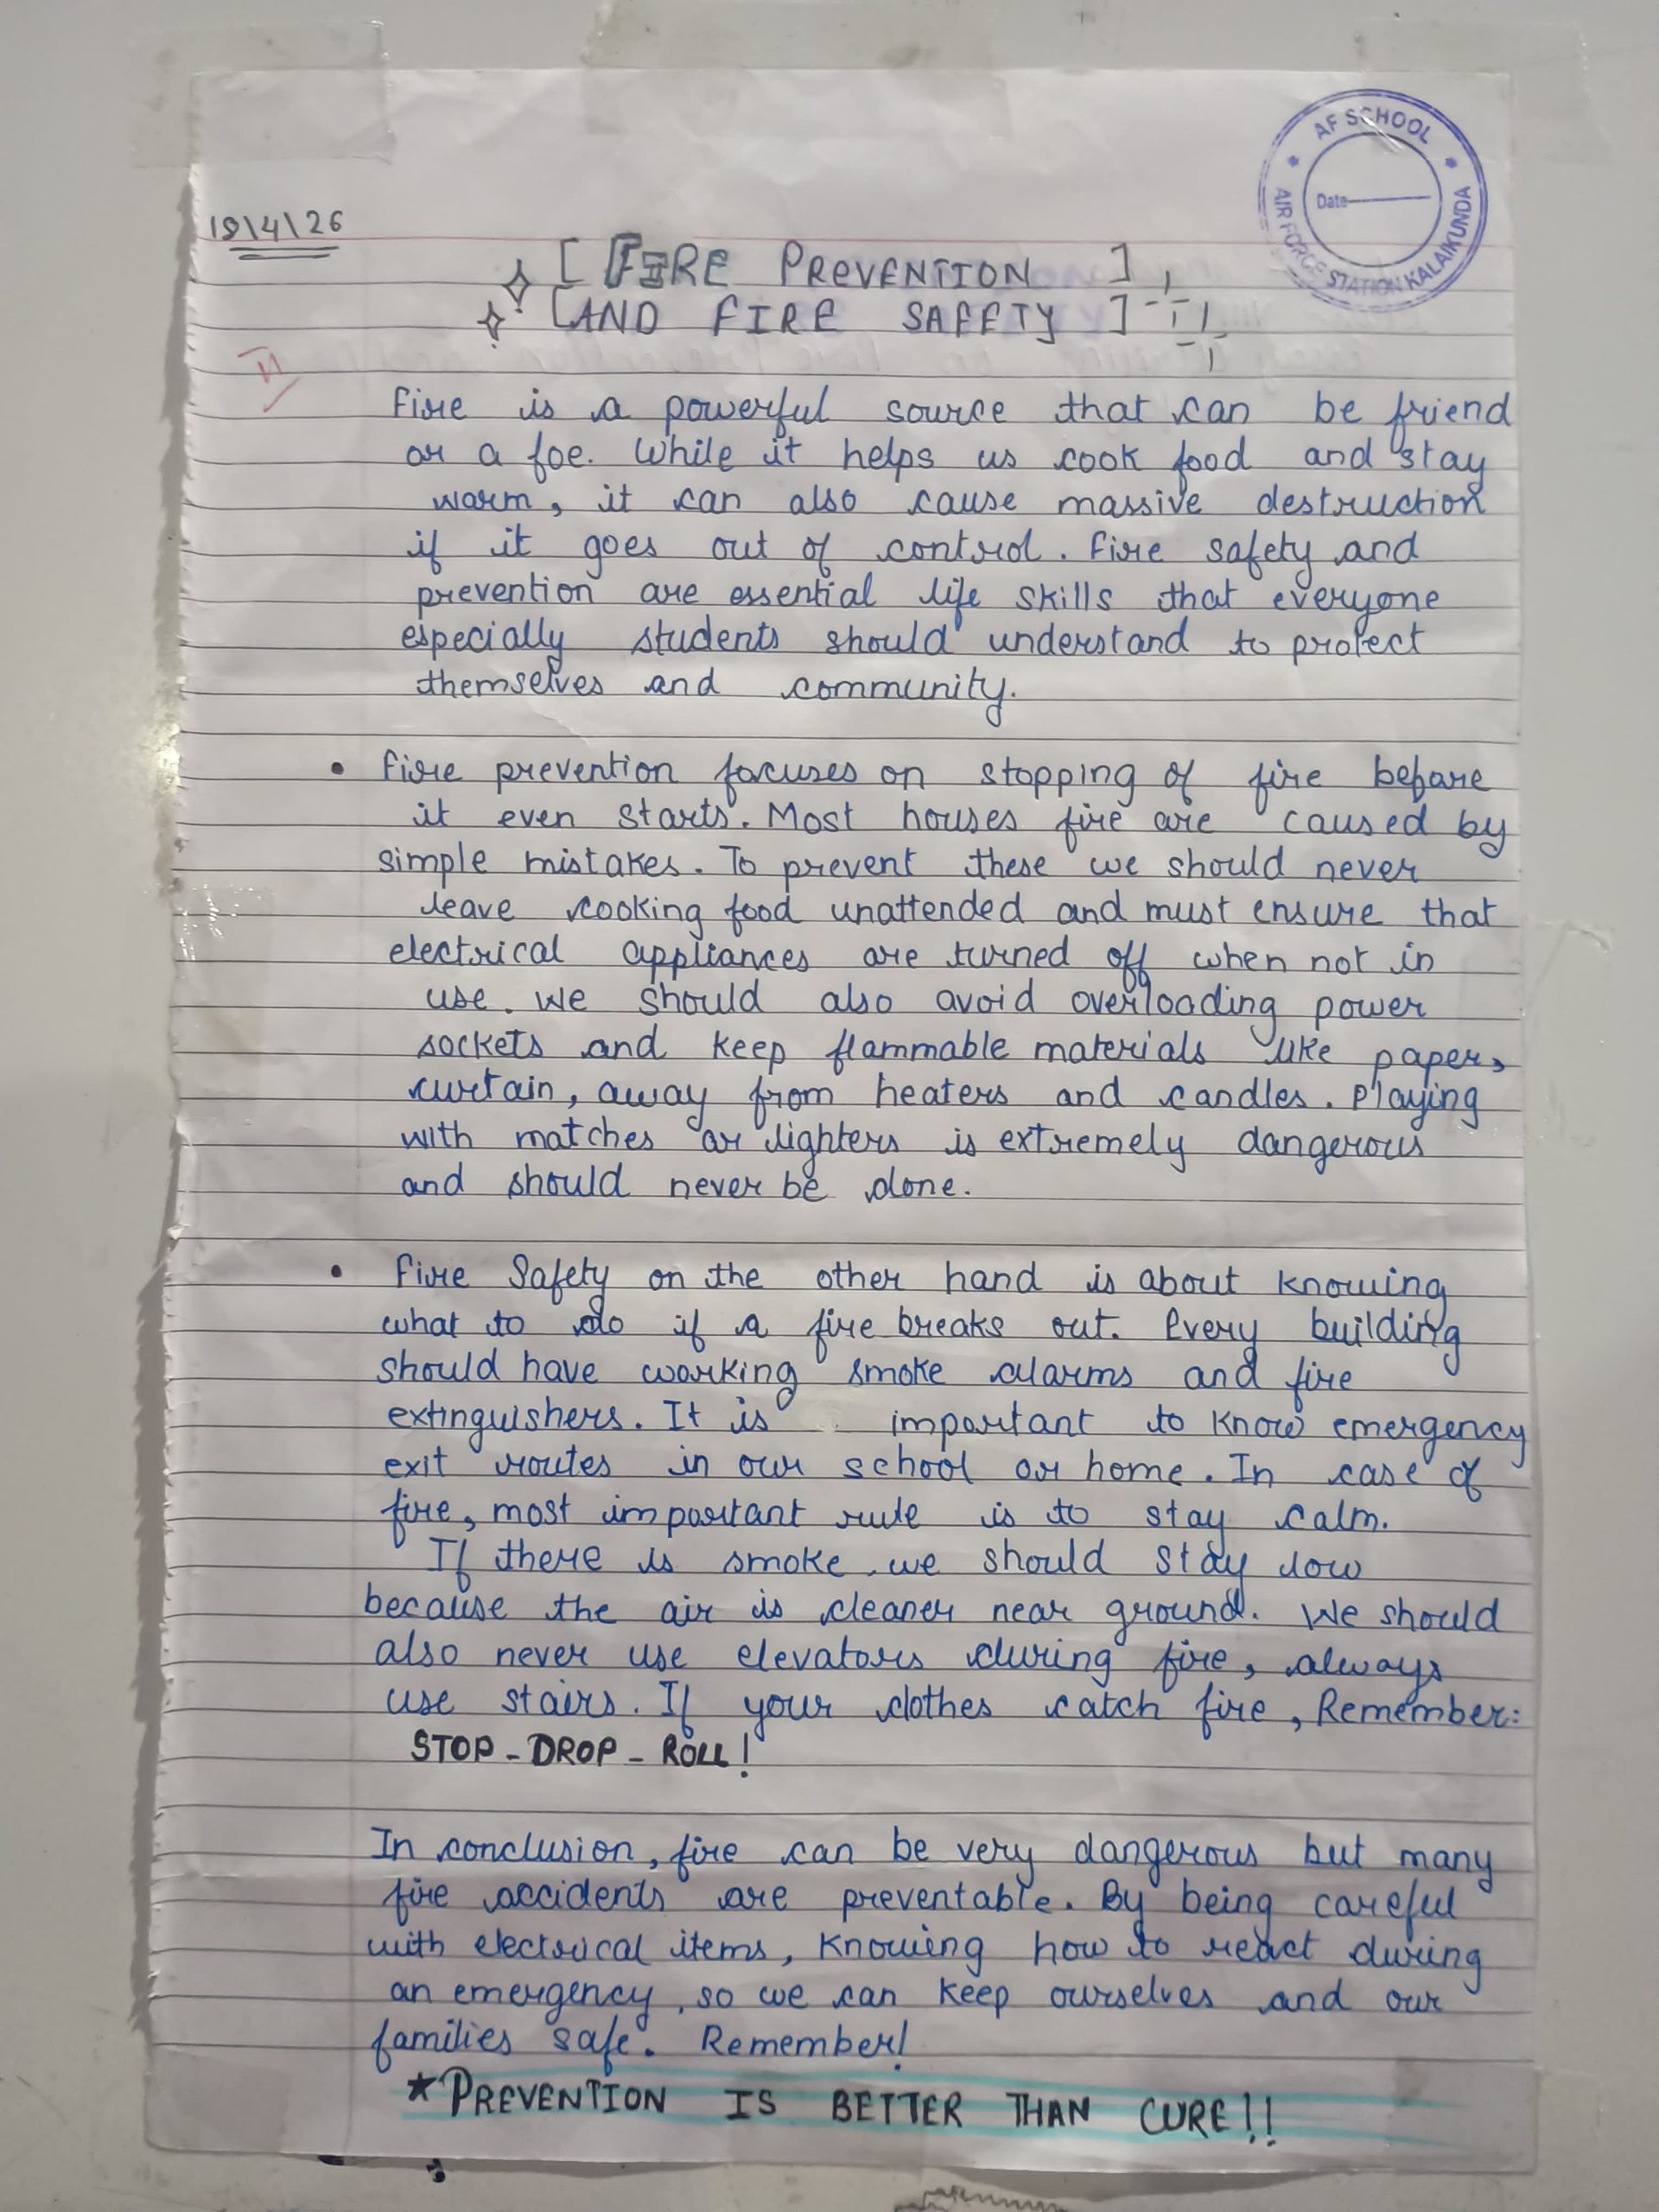 AF SCHOOL
Date
AIR FORCE STATION KALAIKUNDA
19\4\26
[ FIRE PREVENTION ]
[AND FIRE SAFETY ]
Fire is a powerful source that can be friend
or a foe. While it helps us cook food and stay
warm, it can also cause massive destruction
if it goes out of control. Fire safety and
prevention are essential life skills that everyone
especially students should understand to protect
themselves and community.
• Fire prevention focuses on stopping of fire before
it even starts. Most houses fire are caused by
simple mistakes. To prevent these we should never
leave cooking food unattended and must ensure that
electrical appliances are turned off when not in
use. We should also avoid overloading power
sockets and keep flammable materials like paper,
curtain, away from heaters and candles. Playing
with matches or lighters is extremely dangerous
and should never be done.
• Fire Safety on the other hand is about knowing
what to do if a fire breaks out. Every building
should have working smoke alarms and fire
extinguishers. It is important to know emergency
exit routes in our school or home. In case of
fire, most important rule is to stay calm.
If there is smoke, we should stay low
because the air is cleaner near ground. We should
also never use elevators during fire, always
use stairs. If your clothes catch fire, Remember:
STOP - DROP - ROLL!
In conclusion, fire can be very dangerous but many
fire accidents are preventable. By being careful
with electrical items, knowing how to react during
an emergency, so we can keep ourselves and our
families safe. Remember!
★PREVENTION IS BETTER THAN CURE!!